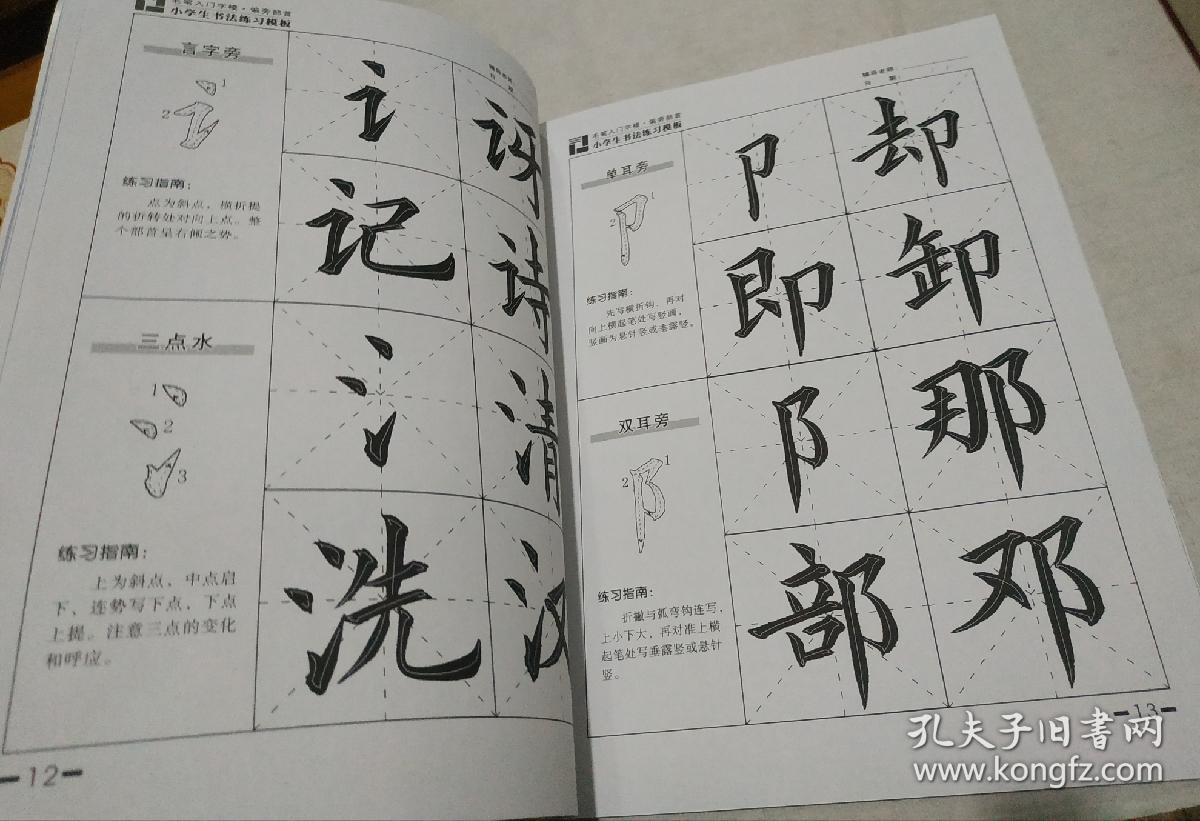 毛笔入门字帖·偏旁部首
小学生书法练习模板
辅导老师:
日 期:
言字旁
1
2
练习指南:
点为斜点,横折提
的折转处对向上点。整
个部首呈右倾之势。
讠 讶
记 诗
三点水
1
2
3
练习指南:
上为斜点、中点启
下、连势写下点,下点
上提。注意三点的变化
和呼应。
氵 清
洗 汉
12
毛笔入门字帖·偏旁部首
小学生书法练习模板
辅导老师:
日 期:
单耳旁
1
2
练习指南:
先写横折钩,再对
向上横起笔处写竖画,
竖画为悬针竖或垂露竖。
卩 却
即 卸
双耳旁
1
2
练习指南:
折撇与弧弯钩连写,
上小下大,再对准上横
起笔处写垂露竖或悬针
竖。
阝 那
部 邓
13
孔夫子旧书网
www.kongfz.com